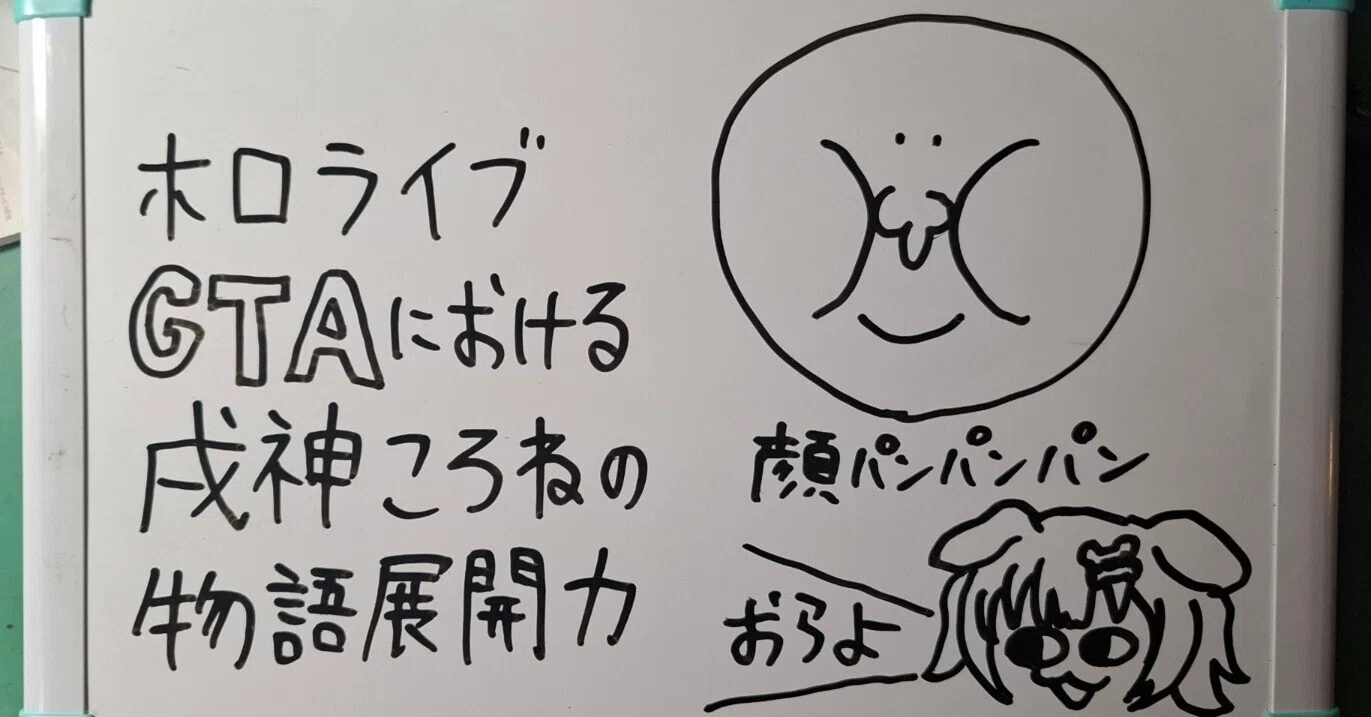 ホロライブ
GTAにおける
戌神ころねの
物語展開力
顔パンパンパン
おらよ